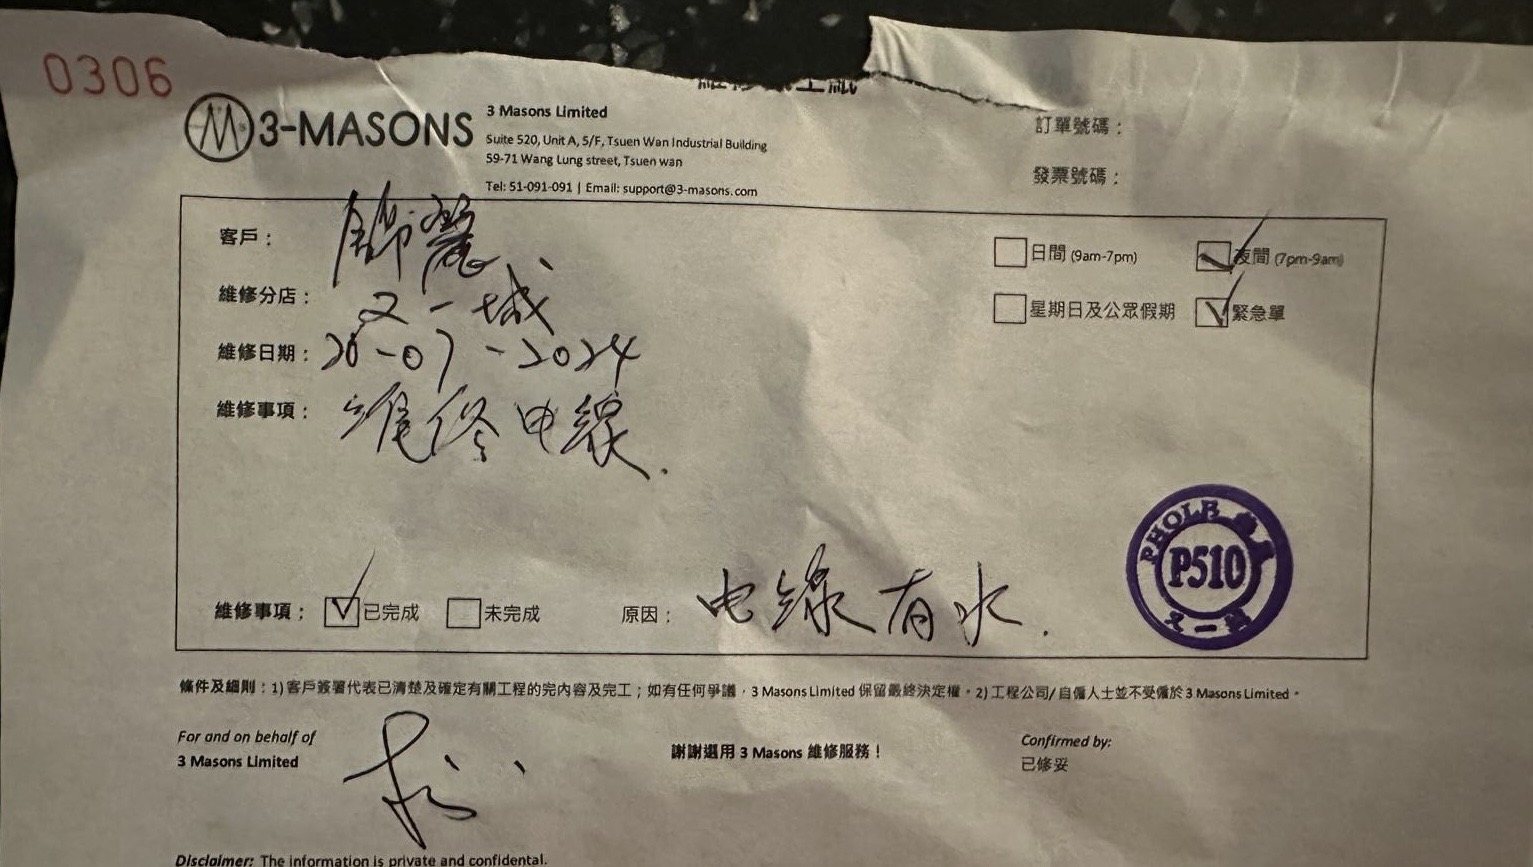 0306
3-MASONS
3 Masons Limited
Suite 520, Unit A, 5/F, Tsuen Wan Industrial Building
59-71 Wang Lung street, Tsuen wan
Tel: 51-091-091 | Email: support@3-masons.com
訂單號碼：
發票號碼：
客戶：
日間 (9am-7pm) 夜間 (7pm-9am)
維修分店： 又一城
星期日及公眾假期 緊急單
維修日期： 20-07-2024
維修事項： 維修电線.
P510
又一城
維修事項： 已完成 未完成 原因： 电線有水.
條件及細則：1) 客戶簽署代表已清楚及確定有關工程的完內容及完工；如有任何爭議，3 Masons Limited 保留最終決定權。2) 工程公司/ 自僱人士並不受僱於 3 Masons Limited。
For and on behalf of
3 Masons Limited
謝謝選用 3 Masons 維修服務！
Confirmed by:
已修妥
Disclaimer: The information is private and confidential.